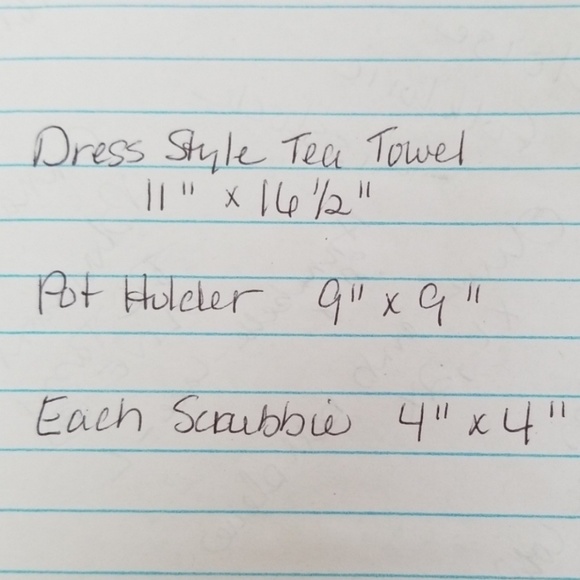 Dress Style Tea Towel
11" x 16 1/2"
Pot Holder 9" x 9"
Each Scrubbie 4" x 4"